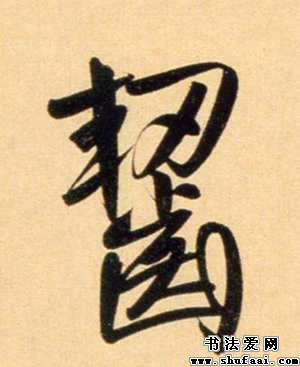 齧
书法爱网
www.shufaai.com